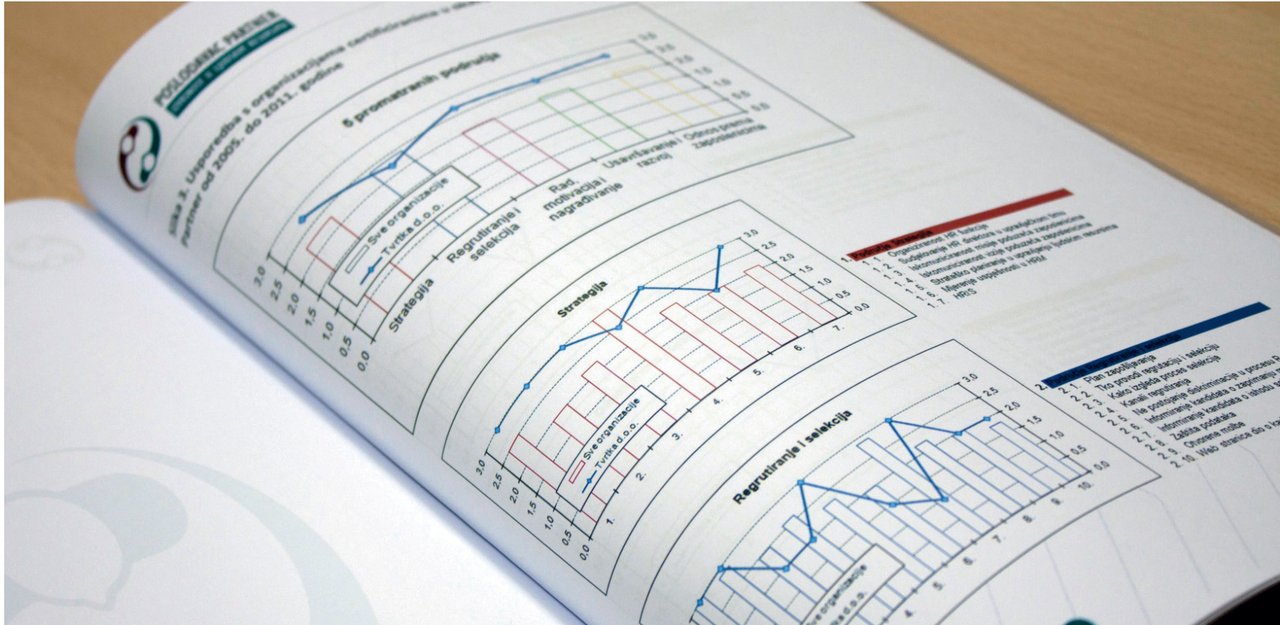 POSLODAVAC PARTNER
Slika 3. Usporedba s organizacijama certificiranima u
Partner od 2005. do 2011. godine
5 promatranih područja
3.0
2.5
2.0
1.5
1.0
0.5
0.0
3.0
2.5
2.0
1.5
1.0
0.5
0.0
Sve organizacije
Tvrtka d.o.o.
Strategija
Regrutiranje i
selekcija
Rad,
motivacija i
nagrađivanje
Usavršavanje i
razvoj
Odnos prema
zaposlenicima
Strategija
3.0
2.5
2.0
1.5
1.0
0.5
0.0
3.0
2.5
2.0
1.5
1.0
0.5
0.0
Sve organizacije
Tvrtka d.o.o.
1.
2.
3.
4.
5.
6.
7.
1. Područje Strategija
1. 1. Organiziranost HR funkcije
1. 2. Sudjelovanje HR direktora u upravljačkom timu
1. 3. Iskomuniciranost misije poduzeća zaposlenicima
1. 4. Iskomuniciranost vizije poduzeća zaposlenicima
1. 5. Strateško planiranje u upravljanju ljudskim resursima
1. 6. Mjerenje uspješnosti u HRM
1. 7. HRIS
Regrutiranje i selekcija
3.0
2.5
2.0
1.5
1.0
0.5
0.0
Sve organizacije
d.o.o.
4.
5.
6.
7.
8.
9.
10.
2.
2. 1. Plan zapošljavanja
2. 2. Tko provodi regrutaciju i selekciju
2. 3. Kako izgleda proces selekcije
2. 4. Kanali regrutiranja
2. 5. Ne postojanje diskriminacije u procesu
2. 6. Informiranje kandidata o zaprimanju
2. 7. Informiranje kandidata o ishodu
2. 8. Zaštita podataka
2. 9. Otvorene molbe
2. 10. Web stranice dio o